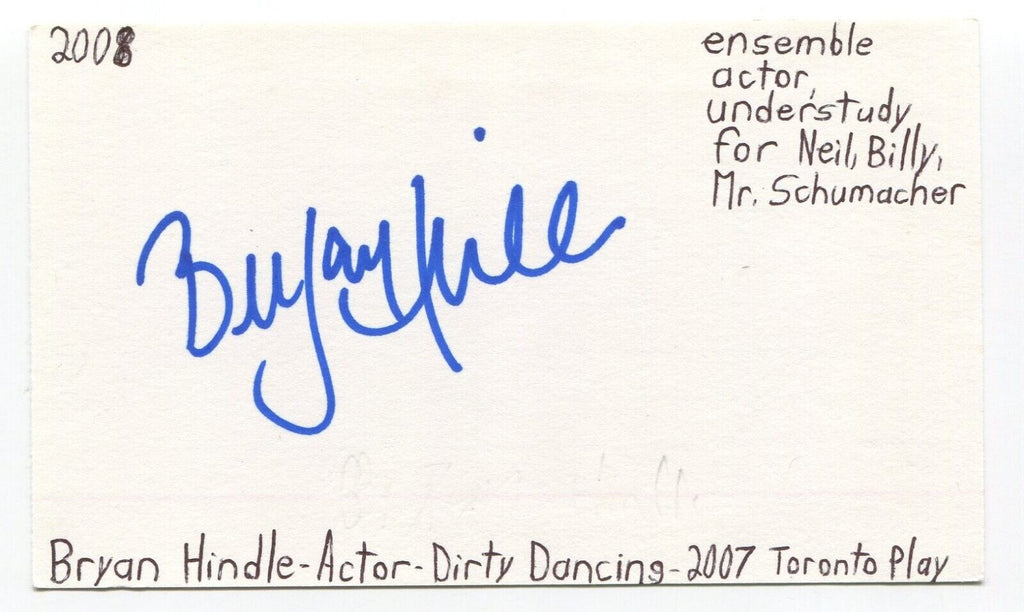 2008
ensemble
actor,
understudy
for Neil, Billy,
Mr. Schumacher
Bryan Hindle-Actor-Dirty Dancing-2007 Toronto Play